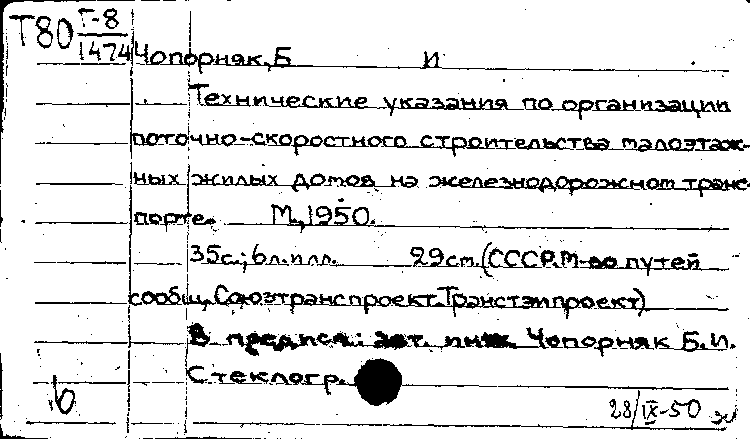 Т80 Т-8
1474
Чопорняк, Б И
Технические указания по организации
поточно-скоростного строительства малоэтаж-
ных жилых домов на железнодорожном транс-
порте. М., 1950.
35с.; 6л.илл. 29см. (СССР. М-во путей
сообщ. Союзтранспроект. Трансэтипроект)
В предисл.: авт. инж. Чопорняк Б.И.
Стеклогр.
28/IX-50